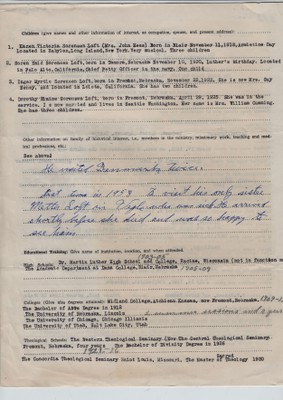 Children (give names and other information of interest, as occupation, spouse, and present address):
1. Karen Victoria Sorensen Loft (Mrs. John Hess) Born in Blair November 11,1918, Armistice Day
Located in Babylon, Long Island, New York. Very musical. Three children
2. Soren Emil Sorensen Loft, born in Tecora, Nebraska November 10, 1920, Luther's birthday. Located
in Palo Alto, California. Chief Petty Officer in the navy. One child
3. Inger Myrtle Sorensen Loft, born in Fremont, Nebraska, November 22, 1922. She is now Mrs. Guy
and is located in California. She has two children.
4. Dorothy Elaine Sorensen Loft, born in Fremont, April 29, 1925. She was in the
service. Is now married and lives in Seattle Washington. Her name is Mrs. William Cumming.
She has three children.
Other information on family of historical interest, i.e., members in the ministry, missionary work, teaching and medical professions, etc.:
See above!
He visited Denmark twice.
Last time in 1953 to visit his only sister
Mette Loft in who was sick. He arrived
shortly before she died and was so happy to
see him.
Educational Training: Give name of institution, location, and when attended
1903-05
High School: Dr. Martin Luther High School and College, Racine, Wisconsin (not in function now
The Academic Department at Dana College, Blair, Nebraska 1905-09
Colleges (Give also degrees attained): Midland College, Atchison Kansas, now Fremont, Nebraska,
The Bachelor of Arts Degree in 1913
The University of Nebraska, Lincoln summer sessions and
The University of Chicago, Chicago Illinois
The University of Utah, Salt Lake City, Utah
Theological Schools: The Western Theological Seminary (Now The Central Theological Seminary
Fremont, Nebraska, four years The Bachelor of Divinity Degree in 1926
The Concordia Theological Seminary Saint Louis, Missouri. The Master of Theology 1930